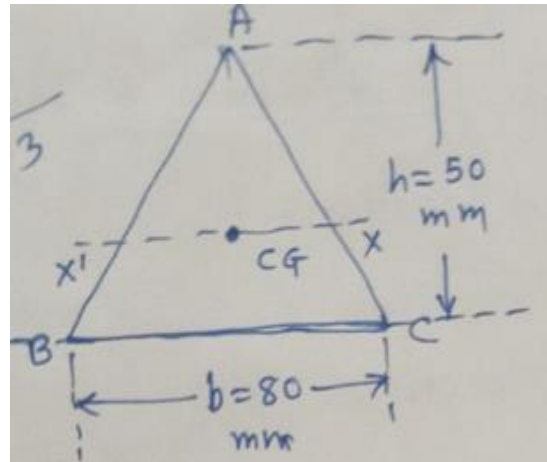 A
3
h=50
mm
X'
CG
X
B
C
b=80
mm